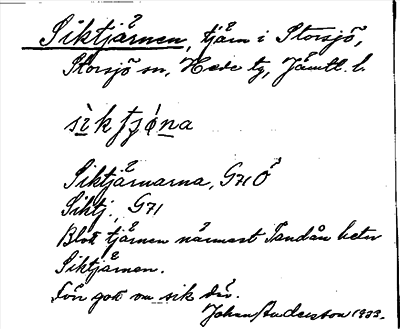 Siktjärnen, tjärn i Storsjö,
Storsjö sn, Hede tg, Jämtl. l.
sìktjǿna
Siktjärnarna, G71Ö
Siktj. G71
Blott tjärnen närmast Tandån heter
Siktjärnen.
Förr gott om sik där.
Johan Anderson 1933.